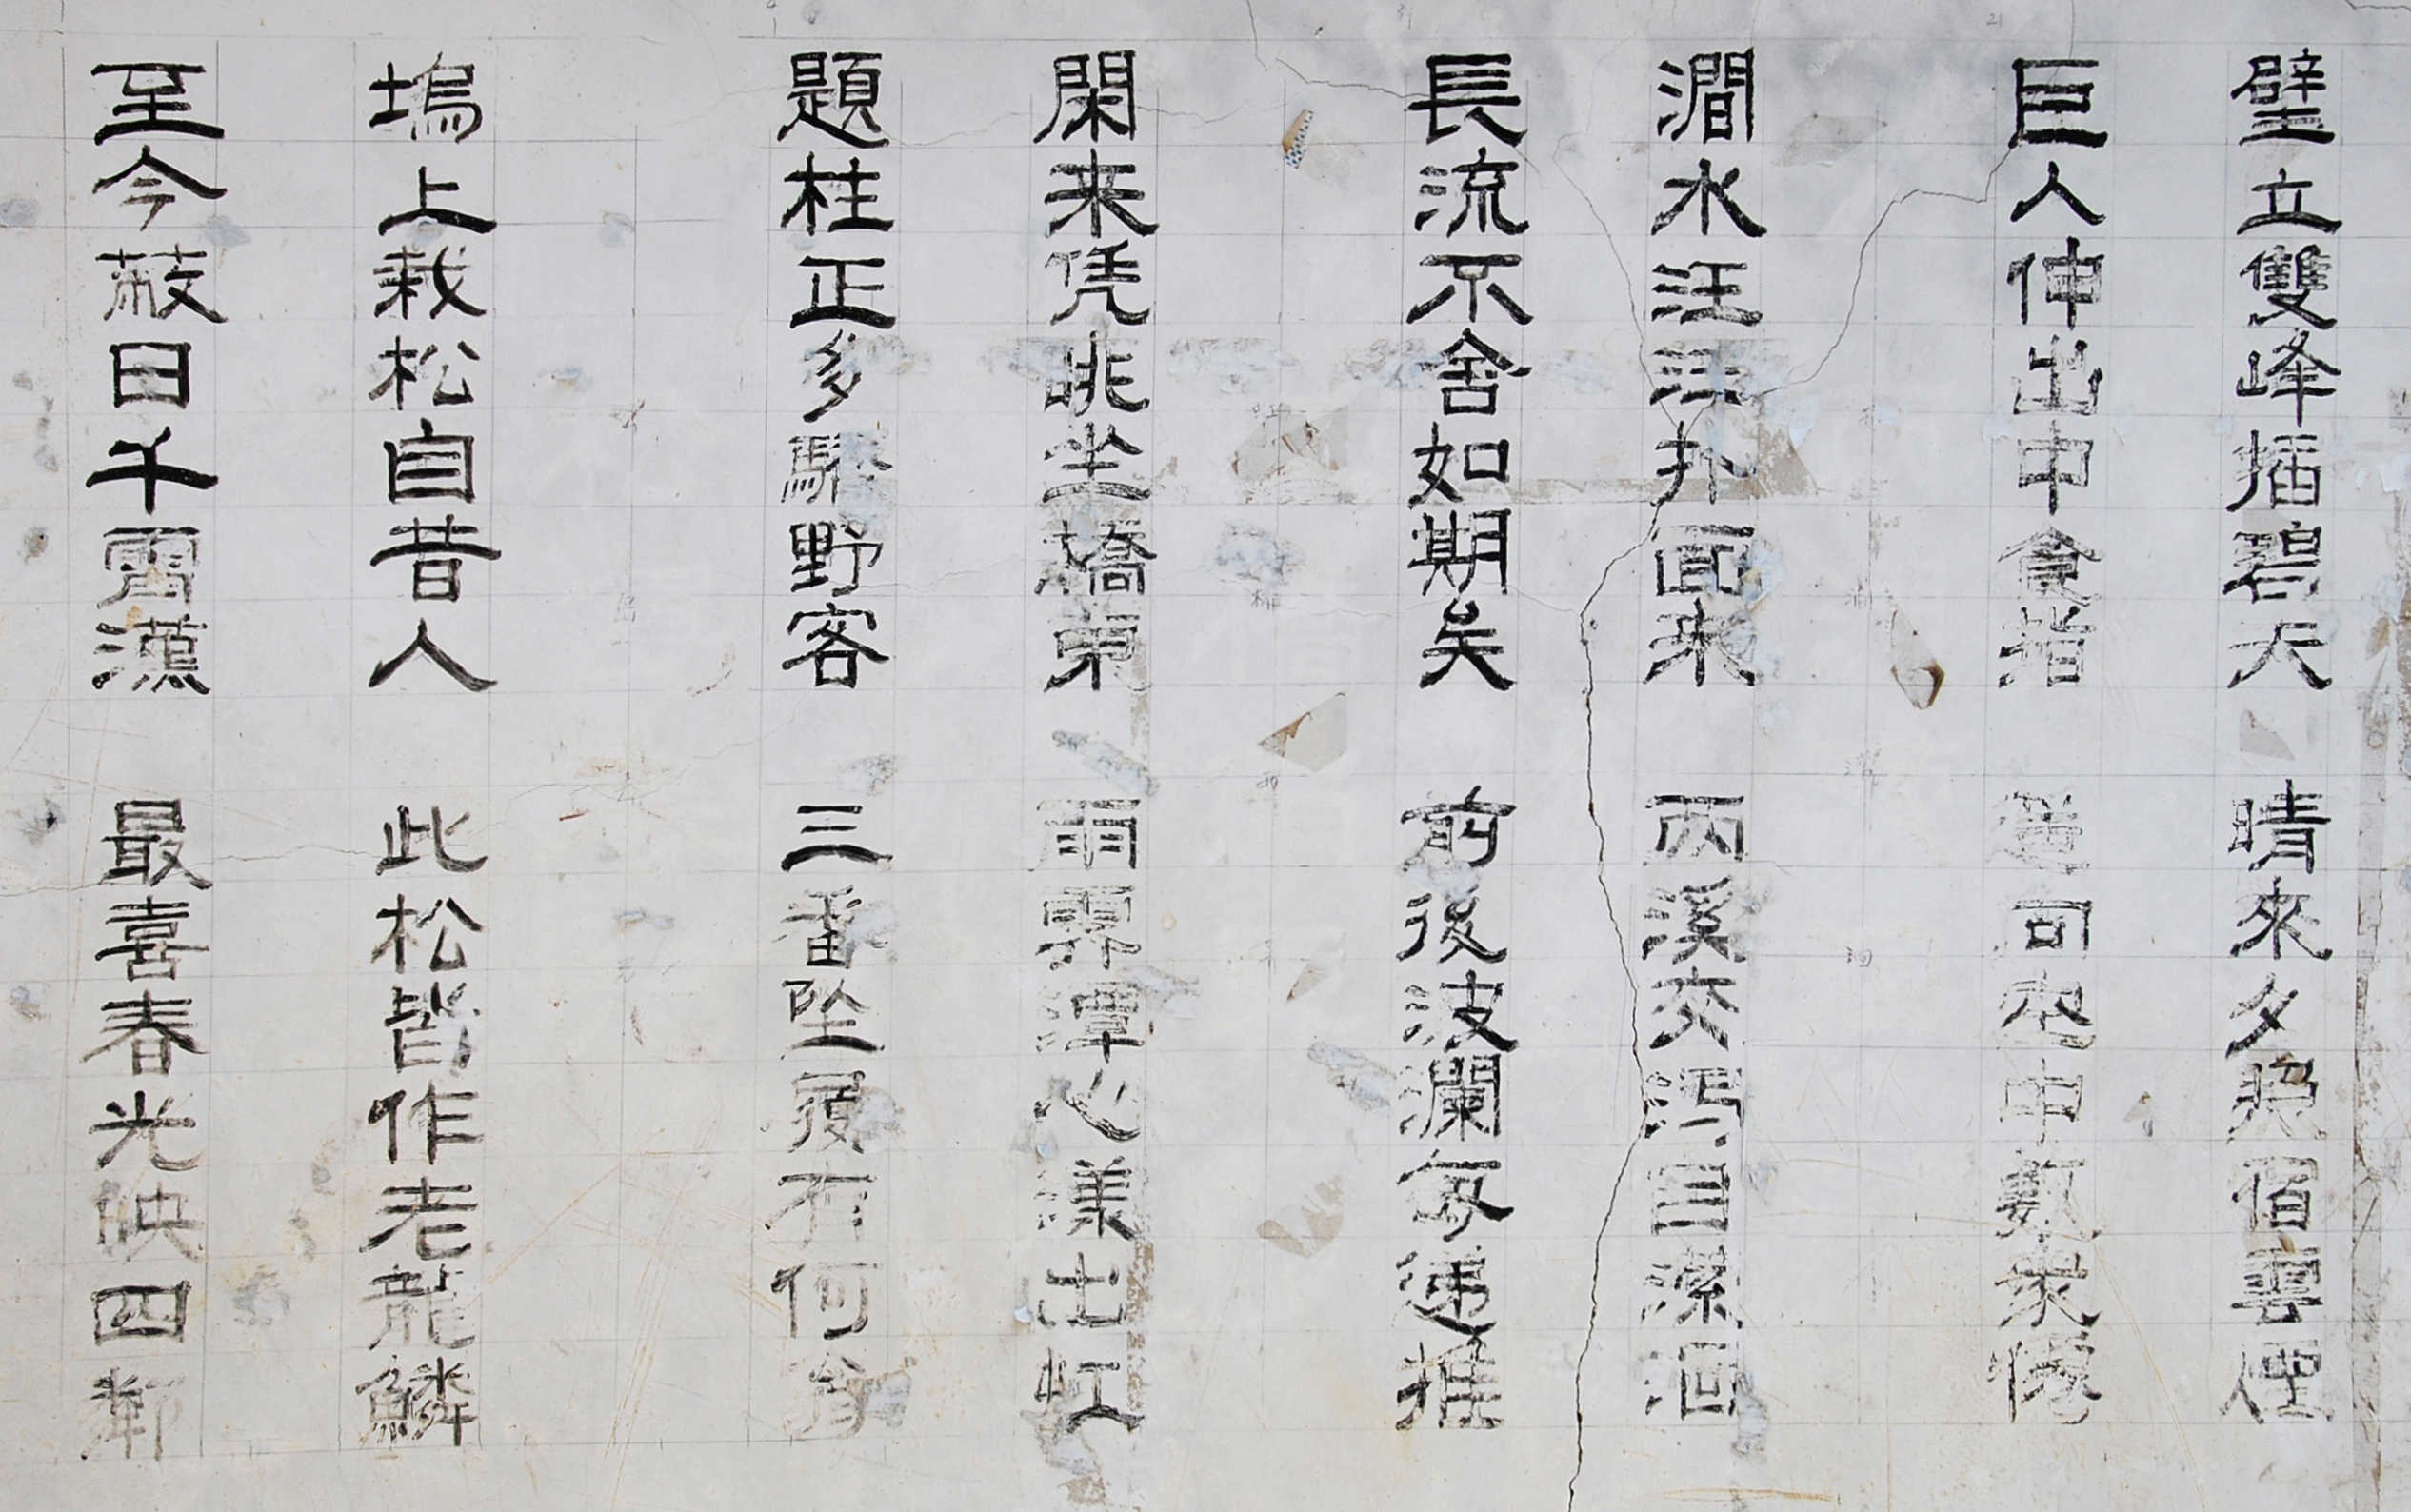 壁立雙峰插碧天 晴來夕照宿雲煙
巨人伸出中食指 向空中數衆愆
澗水汪汪扑面來 两溪交瀉自瀠洄
長流不舍如期矣 前後波瀾每递推
閑来凭眺坐橋東 雨霽潭心漾出虹
題柱正多騷野客 三番墜履有何翁
塢上栽松自昔人 此松皆作老龍鱗
至今蔽日千霄漢 最喜春光映四鄰